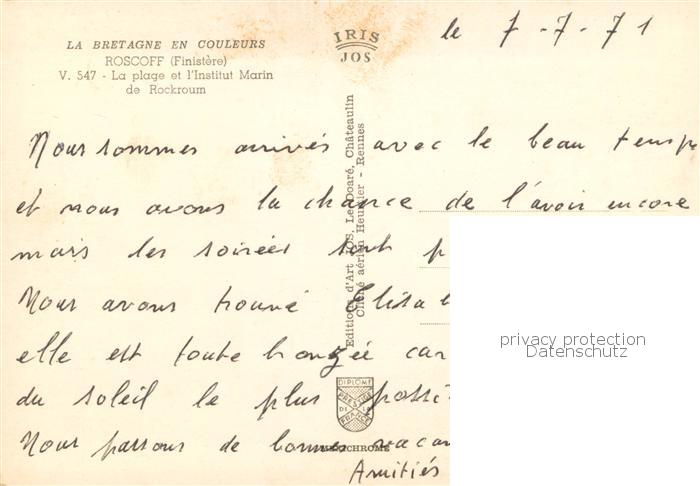 LA BRETAGNE EN COULEURS
ROSCOFF (Finistère)
V. 547 - La plage et l'Institut Marin
de Rockroum
IRIS
JOS
le 7-7-71
Nous sommes arrivés avec le beau temps
et nous avons la chance de l'avoir encore
mais les soirées sont
Nous avons trouvé
elle est toute bronzée car
du soleil le plus
Nous passons de bonnes
Amitiés
Editions d'Art JOS, Le Doaré, Châteaulin
Cliché aérien Heurtier - Rennes
DIPLOME
PRESTIGE
DE LA
FRANCE
privacy protection
Datenschutz